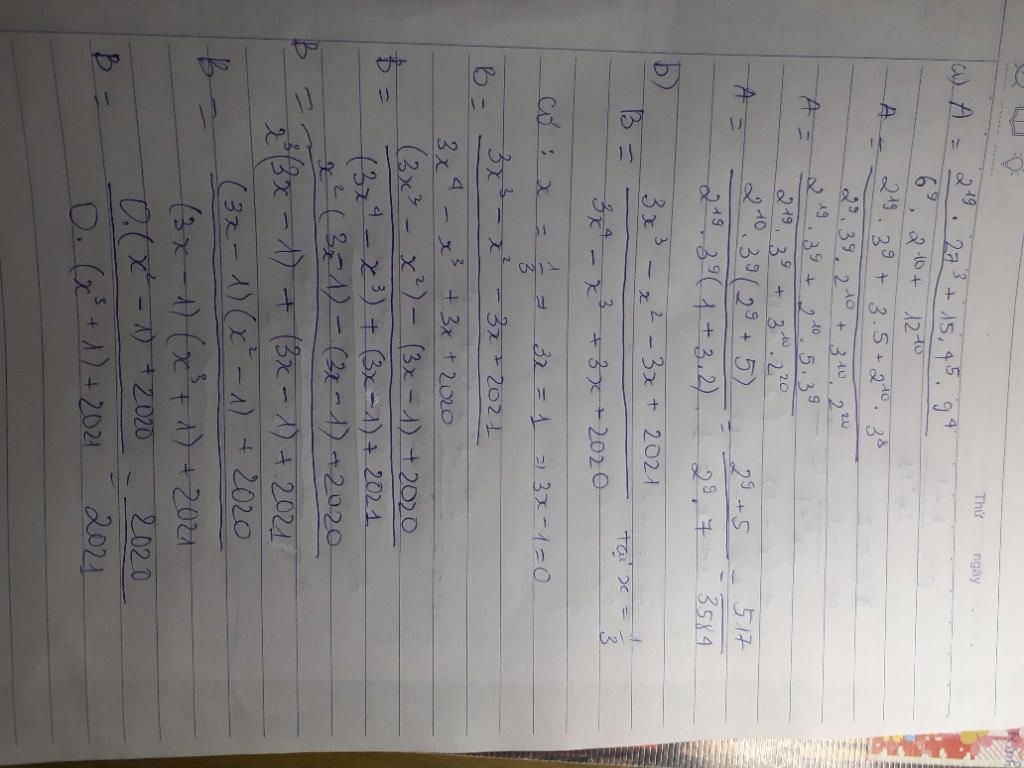 Thứ ngày
a) A = 2¹⁹ . 27³ + 15 . 4⁵ . 9⁴
6⁹ . 2¹⁰ + 12¹⁰
A = 2¹⁹ . 3⁹ + 3 . 5 + 2¹⁰ . 3⁸
2⁹ . 3⁹ . 2¹⁰ + 3¹⁰ . 2²⁰
A = 2¹⁹ . 3⁹ + 2¹⁰ . 5 . 3⁹
2¹⁹ . 3⁹ + 3¹⁰ . 2²⁰
A = 2¹⁰ . 3⁹ (2⁹ + 5) = 2⁹ + 5 = 517
2¹⁹ . 3⁹ (1 + 3.2) 2⁹ . 7 3584
b)
B = 3x³ - x² - 3x + 2021 tại x = 1/3
3x⁴ - x³ + 3x + 2020
Có : x = 1/3 => 3x = 1 => 3x - 1 = 0
B = 3x³ - x² - 3x + 2021
3x⁴ - x³ + 3x + 2020
B = (3x³ - x²) - (3x - 1) + 2020
(3x⁴ - x³) + (3x - 1) + 2021
B = x² (3x - 1) - (3x - 1) + 2020
x³ (3x - 1) + (3x - 1) + 2021
B = (3x - 1) (x² - 1) + 2020
(3x - 1) (x³ + 1) + 2021
B = 0. (x² - 1) + 2020 = 2020
0. (x³ + 1) + 2021 2021